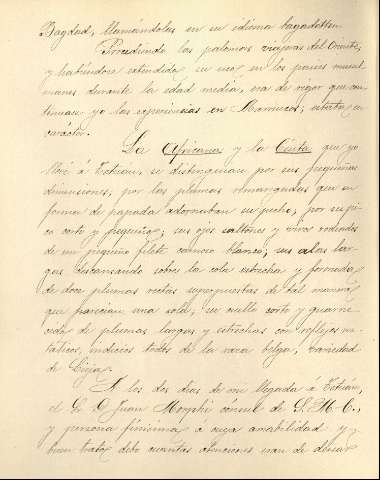 Bagdad, llamándolas en su idioma bagadetten.
Procediendo las palomas viajeras del Oriente,
y habiéndose extendido su uso en los países musul
manes durante la edad media, era de rigor que con
tinuara yo las experiencias en Marruecos;
carácter.
La Africana y la Ceuta que yo
llevé á Tetuan, se distinguian por sus pequeñas
dimensiones, por las plumas almangadas que en
forma de papada adornaban su pecho, por su pi
co corto y pequeño; sus ojos saltones y vivos rodeados
de un pequeño filete carnoso blanco; sus alas lar
gas descansando sobre la cola estrecha y formada
de doce plumas rectas superpuestas de tal manera
que parecian una sola; su cuello corto y guarne
cido de plumas largas y estrechas con reflejos me
tálicos, indicios todos de la raza belga, variedad
de Lieja.
A los dos dias de mi llegada á Tetuan,
el Sr. D. Juan Morphi cónsul de S. M. C.,
y persona finisima á cuya amabilidad y
buen trato debo cuantas atenciones eran de desear